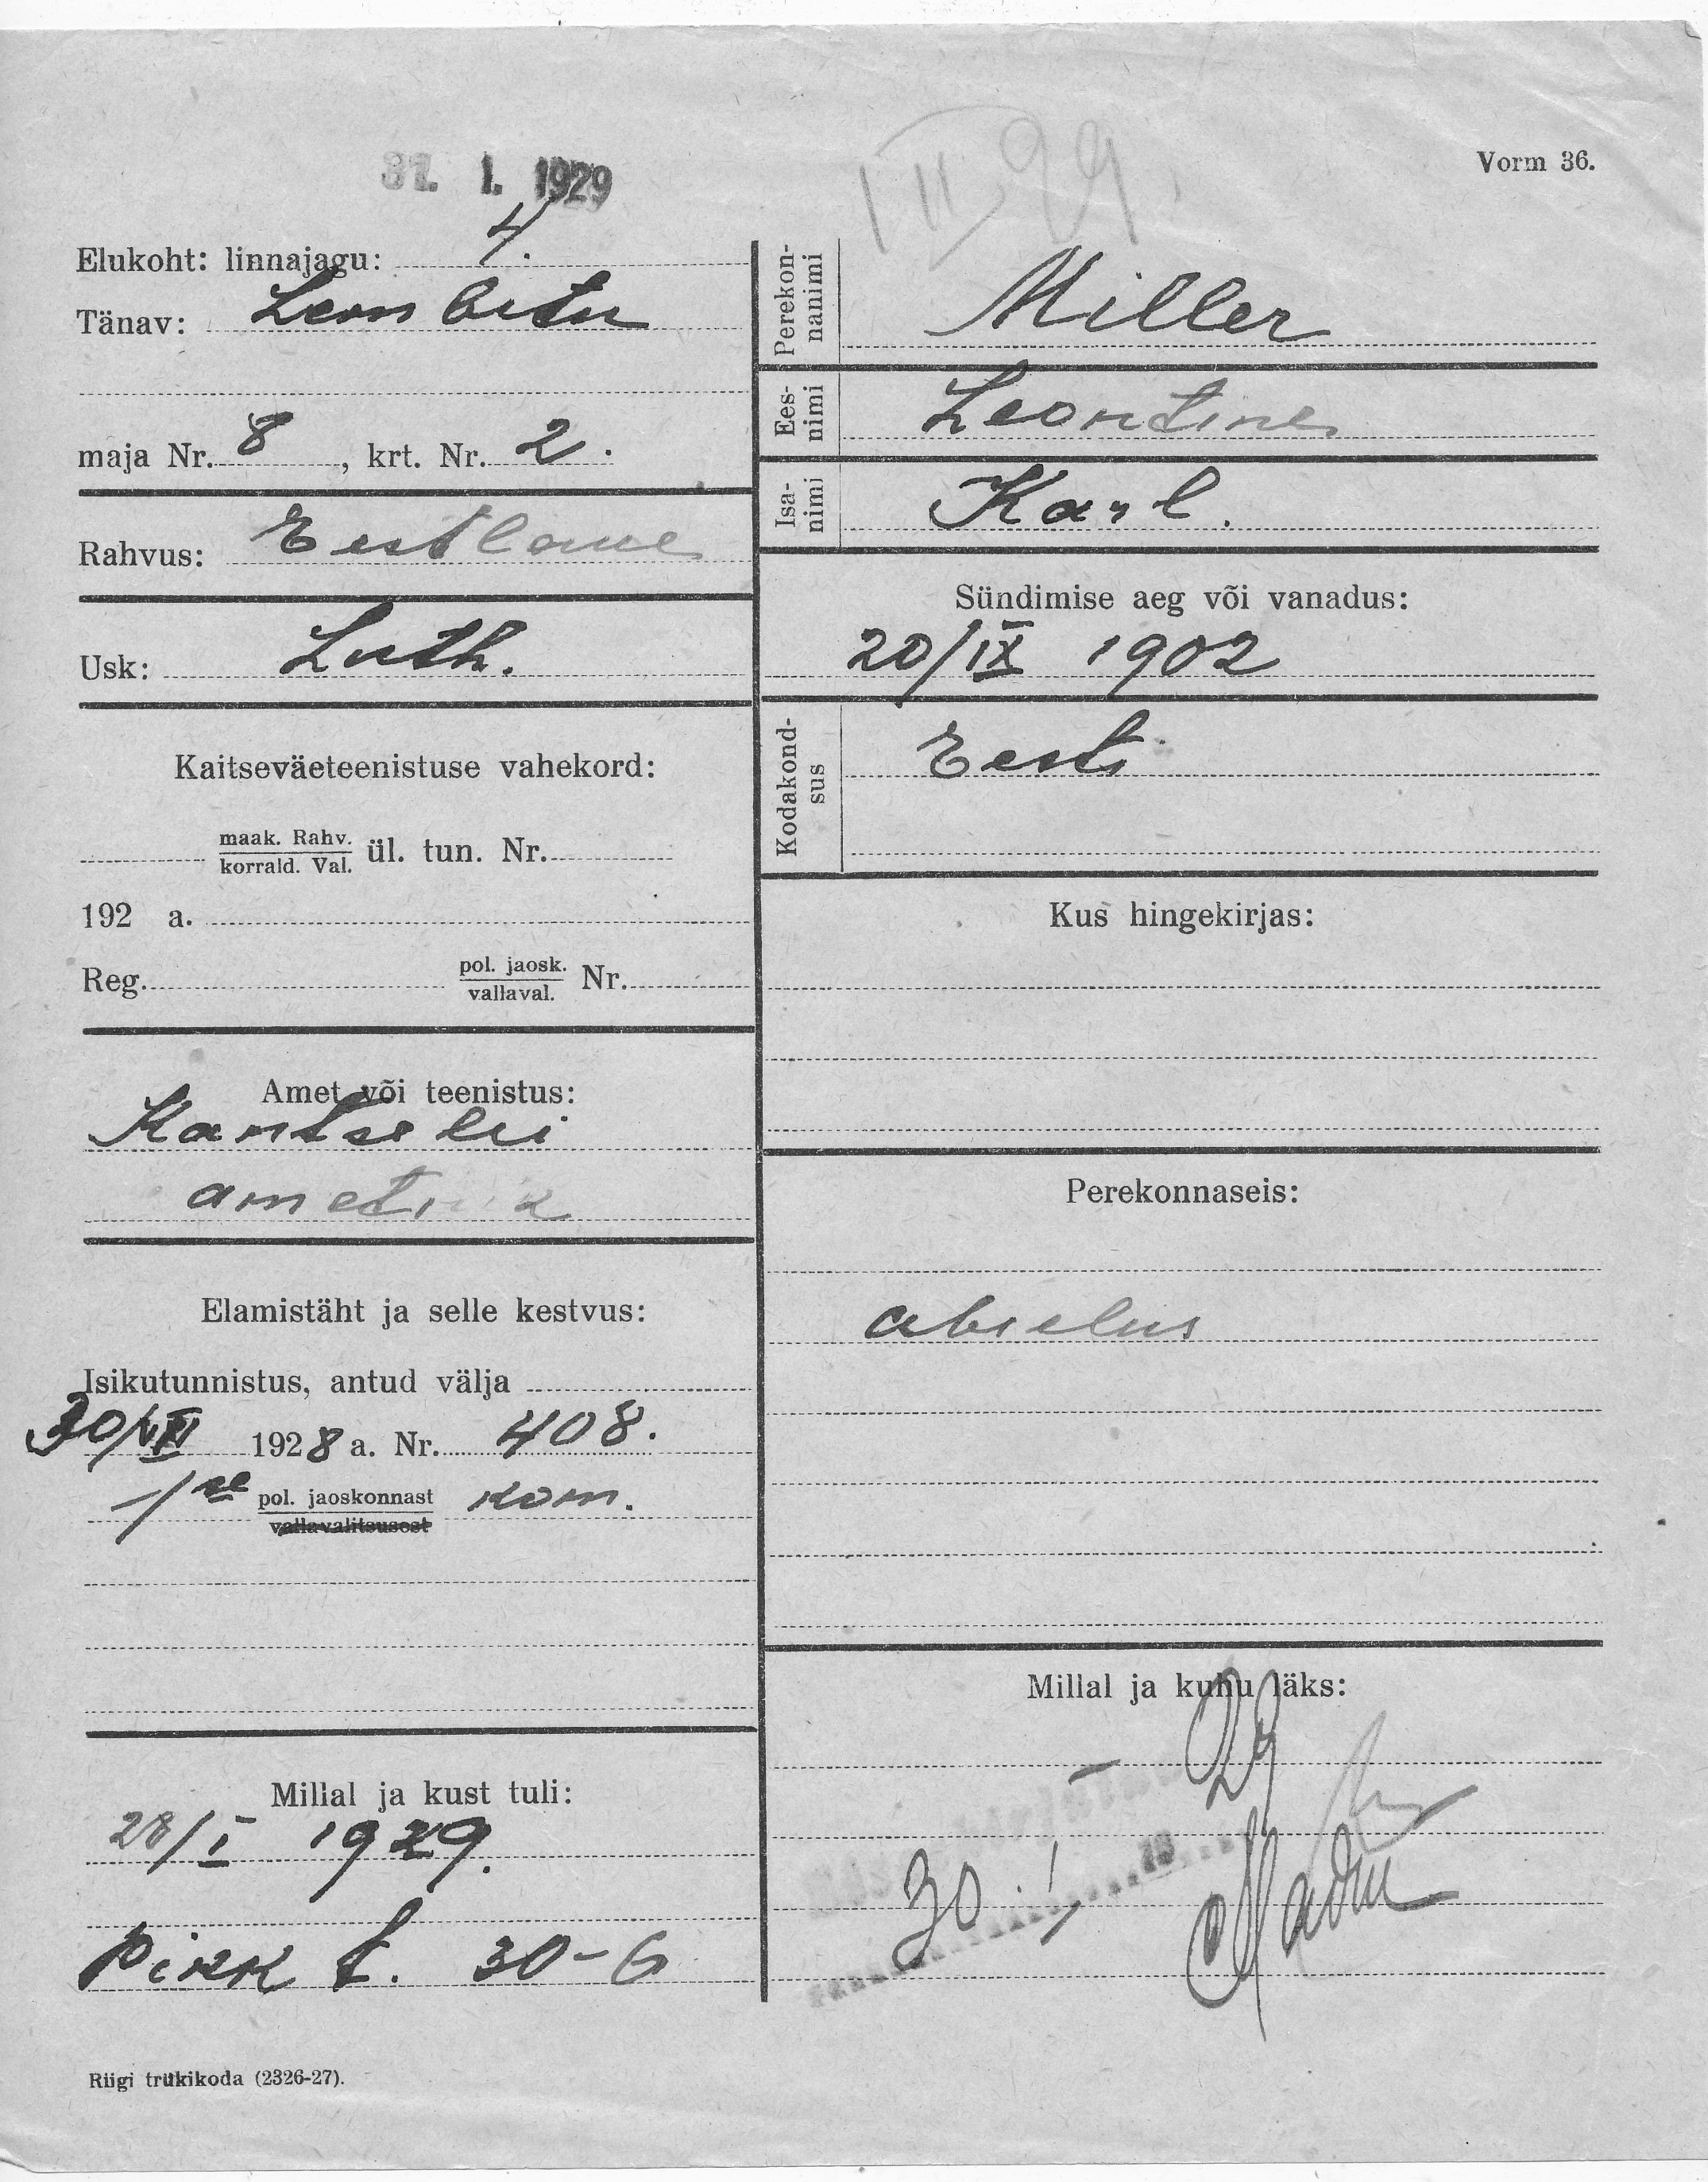 31. 1. 1929
Vorm 36.
Elukoht: linnajagu: 4.
Tänav: Lembitu
maja Nr. 8, krt. Nr. 2.
Rahvus: Eestlane
Usk: Luth.
Kaitseväeteenistuse vahekord:
maak. Rahv.
korrald. Val. ül. tun. Nr.
192 a.
Reg. pol. jaosk. Nr.
vallaval.
Amet või teenistus:
Kantselei
ametnik
Elamistäht ja selle kestvus:
Isikutunnistus, antud välja
1928 a. Nr. 408.
1se pol. jaoskonnast kom.
vallavalitsusest
Millal ja kust tuli:
28/I 1929.
Pikk t. 30-6
Riigi trükikoda (2326-27).
Perekonnanimi
Miller
Eesnimi
Leontine
Isanimi
Karl.
Sündimise aeg või vanadus:
20/IX 1902
Kodakondsus
Eesti
Kus hingekirjas:
Perekonnaseis:
abielus
Millal ja kuhu läks:
29
30